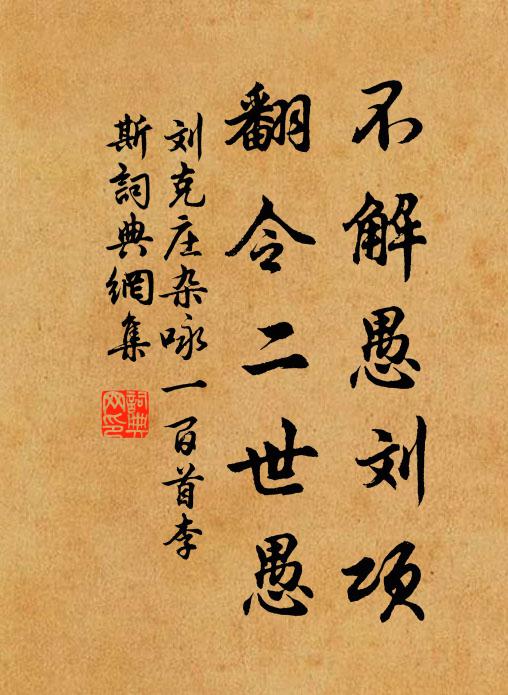 不解愚刘项
翻令二世愚
刘克庄杂咏一百首李
斯詞典網集
詞典网印